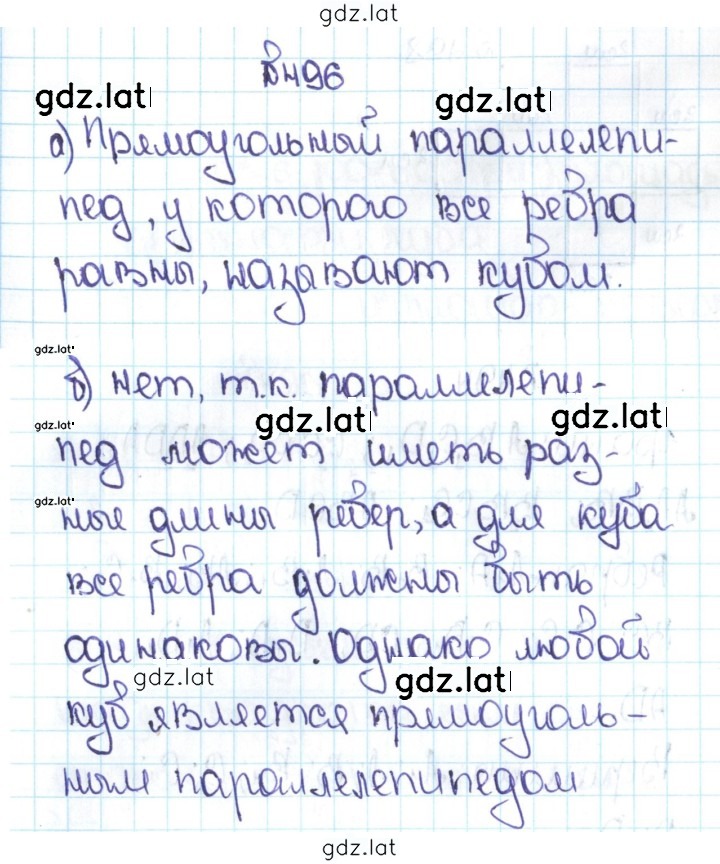 gdz.lat
№496
gdz.lat gdz.lat
а) Прямоугольный параллелепи-
пед, у которого все ребра
равны, называют кубом.
gdz.lat
б) нет, т.к. параллелепи-
gdz.lat gdz.lat gdz.lat
пед может иметь раз-
gdz.lat
ные длины ребер, а для куба
все ребра должны быть
одинаковы. Однако любой
gdz.lat gdz.lat
куб является прямоуголь-
ным параллелепипедом
gdz.lat